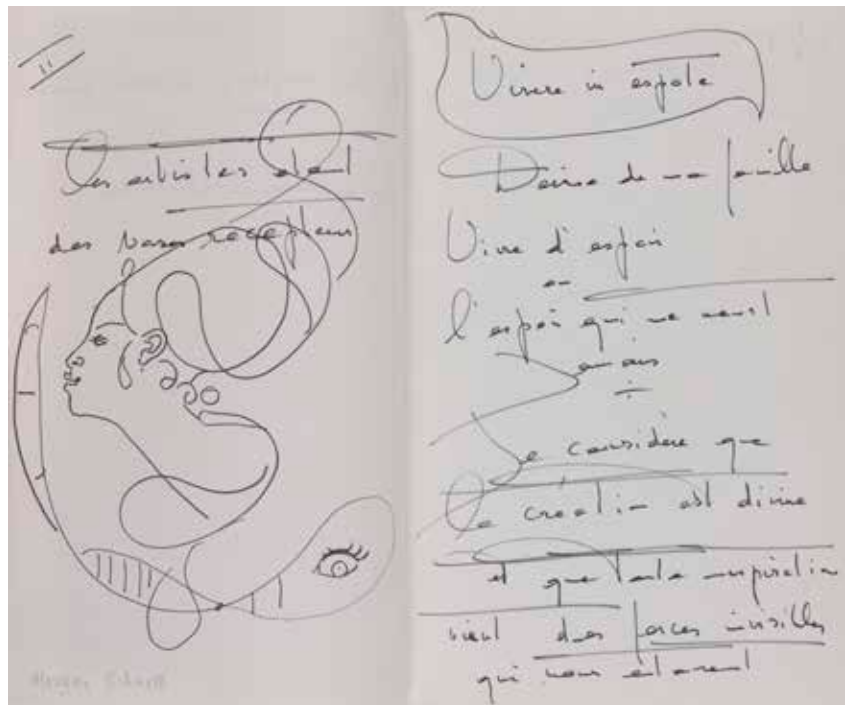 11
Les artistes étant
des vases recepteurs
Vivere in espole
Devise de ma famille
Vivre d'espoir
ou
l'espoir qui ne meurt
jamais
÷
Je considère que
la création est divine
et que toute inspiration
vient des forces invisibles
qui nous entourent